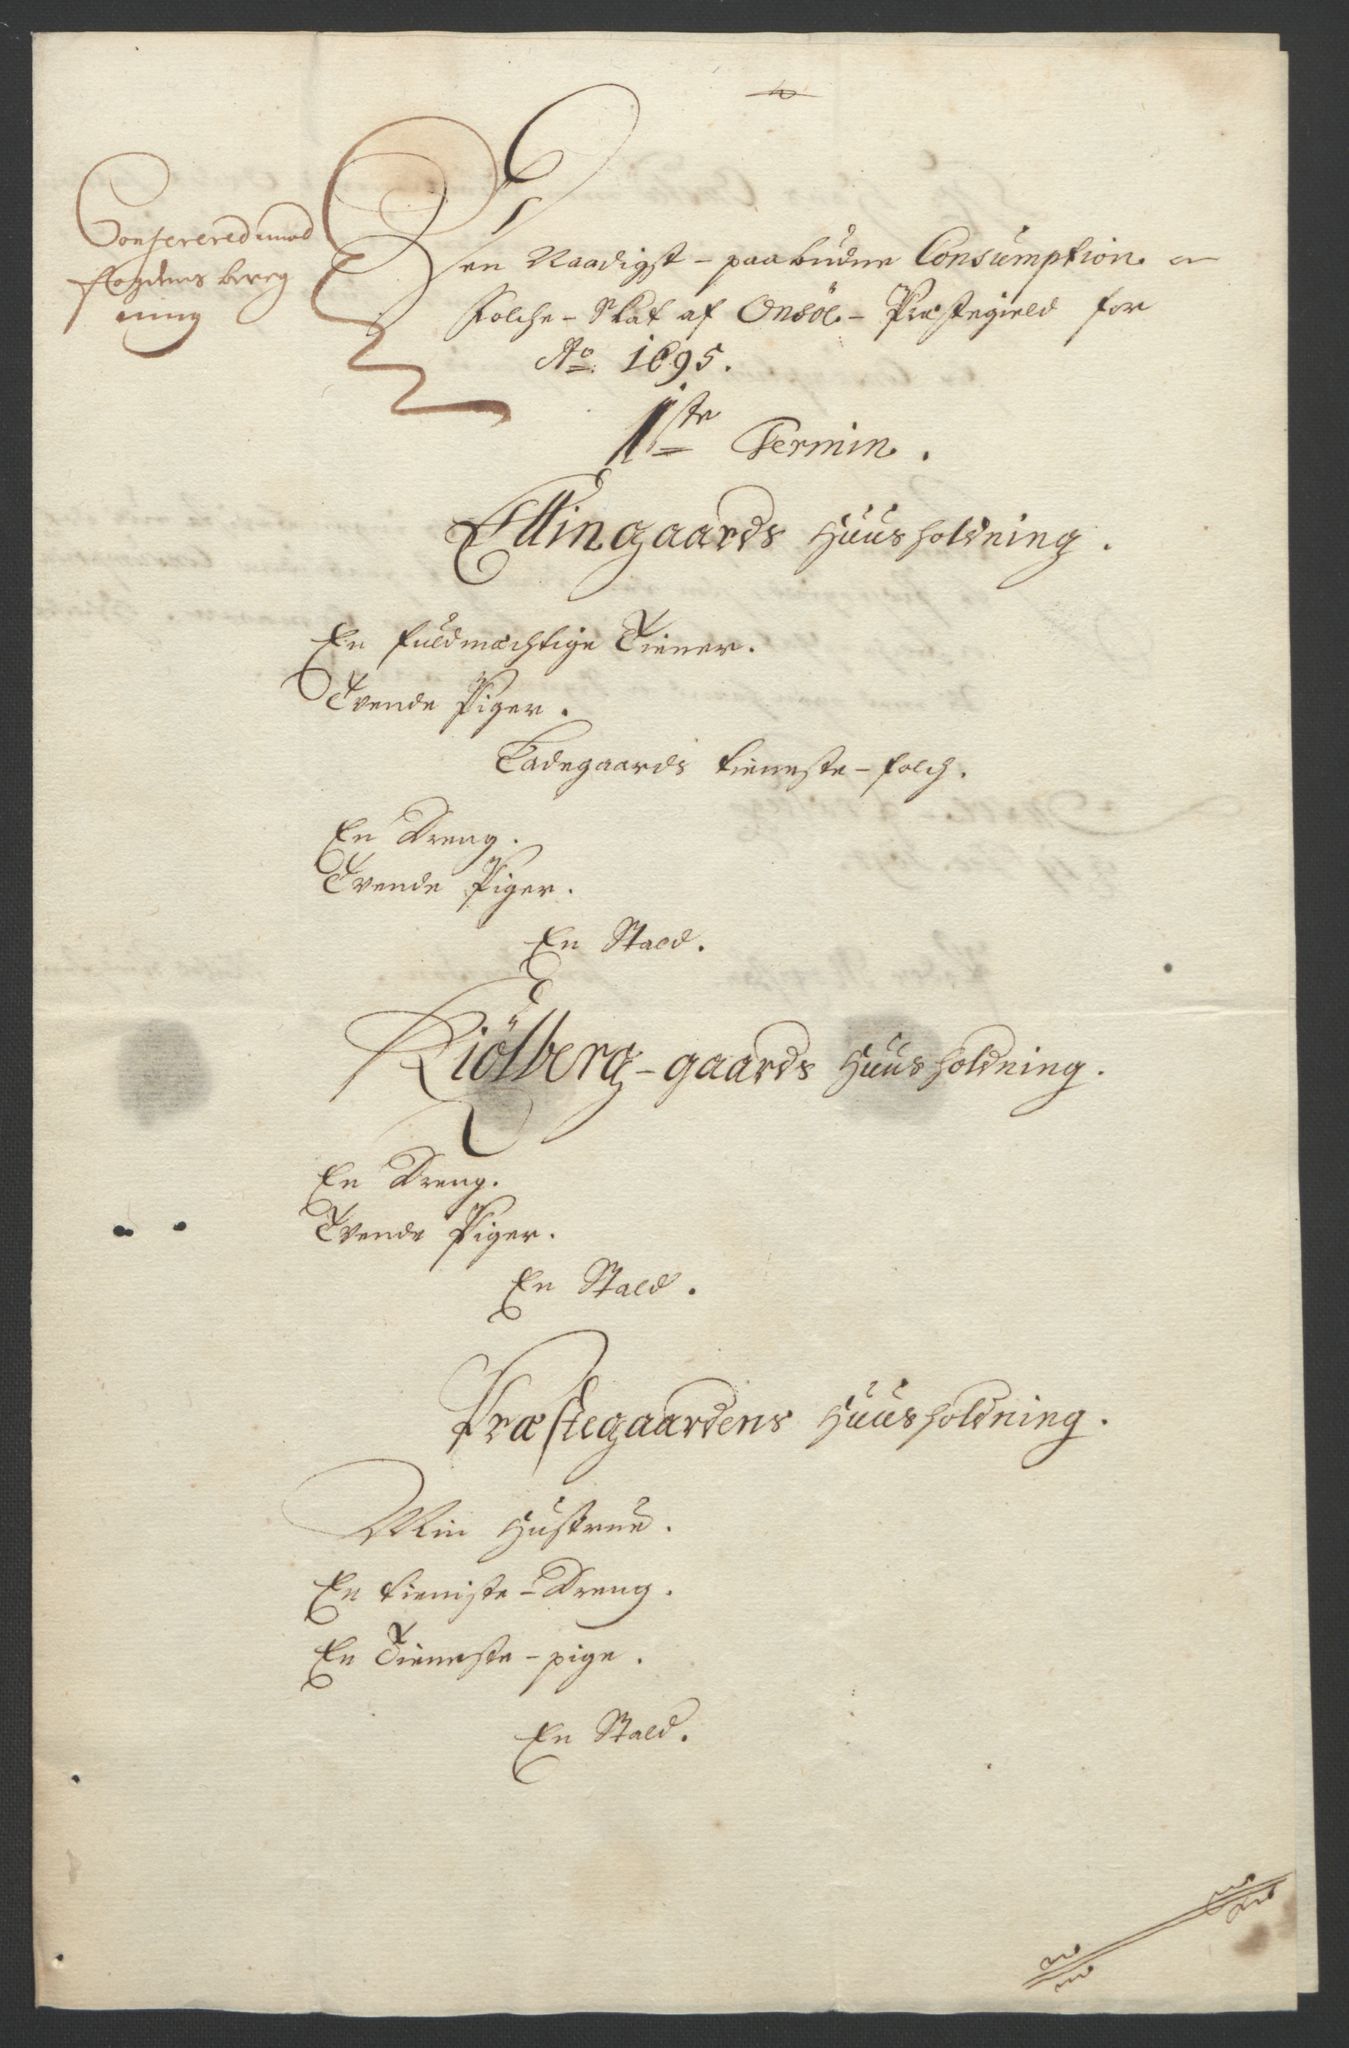 Conferered imod
fogdens bereg
ning
Den Naadigst - paabudne Consumption og
Folche - Skat af Onsöe - Præstegield for
Ao 1695.
1ste Termin.
Ellingaards Huusholdning.
En fuldmæchtige Tiener.
Tvende Piger.
Ladegaards tieneste - folch.
En Dreng.
Tvende Piger.
En Stald.
Kiölberg - gaards Huusholdning.
En Dreng.
Tvende Piger.
En Stald.
Præstegaardens Huusholdning.
Min Hustrue.
En tieniste - Dreng.
En Tieneste - pige.
En Stald.